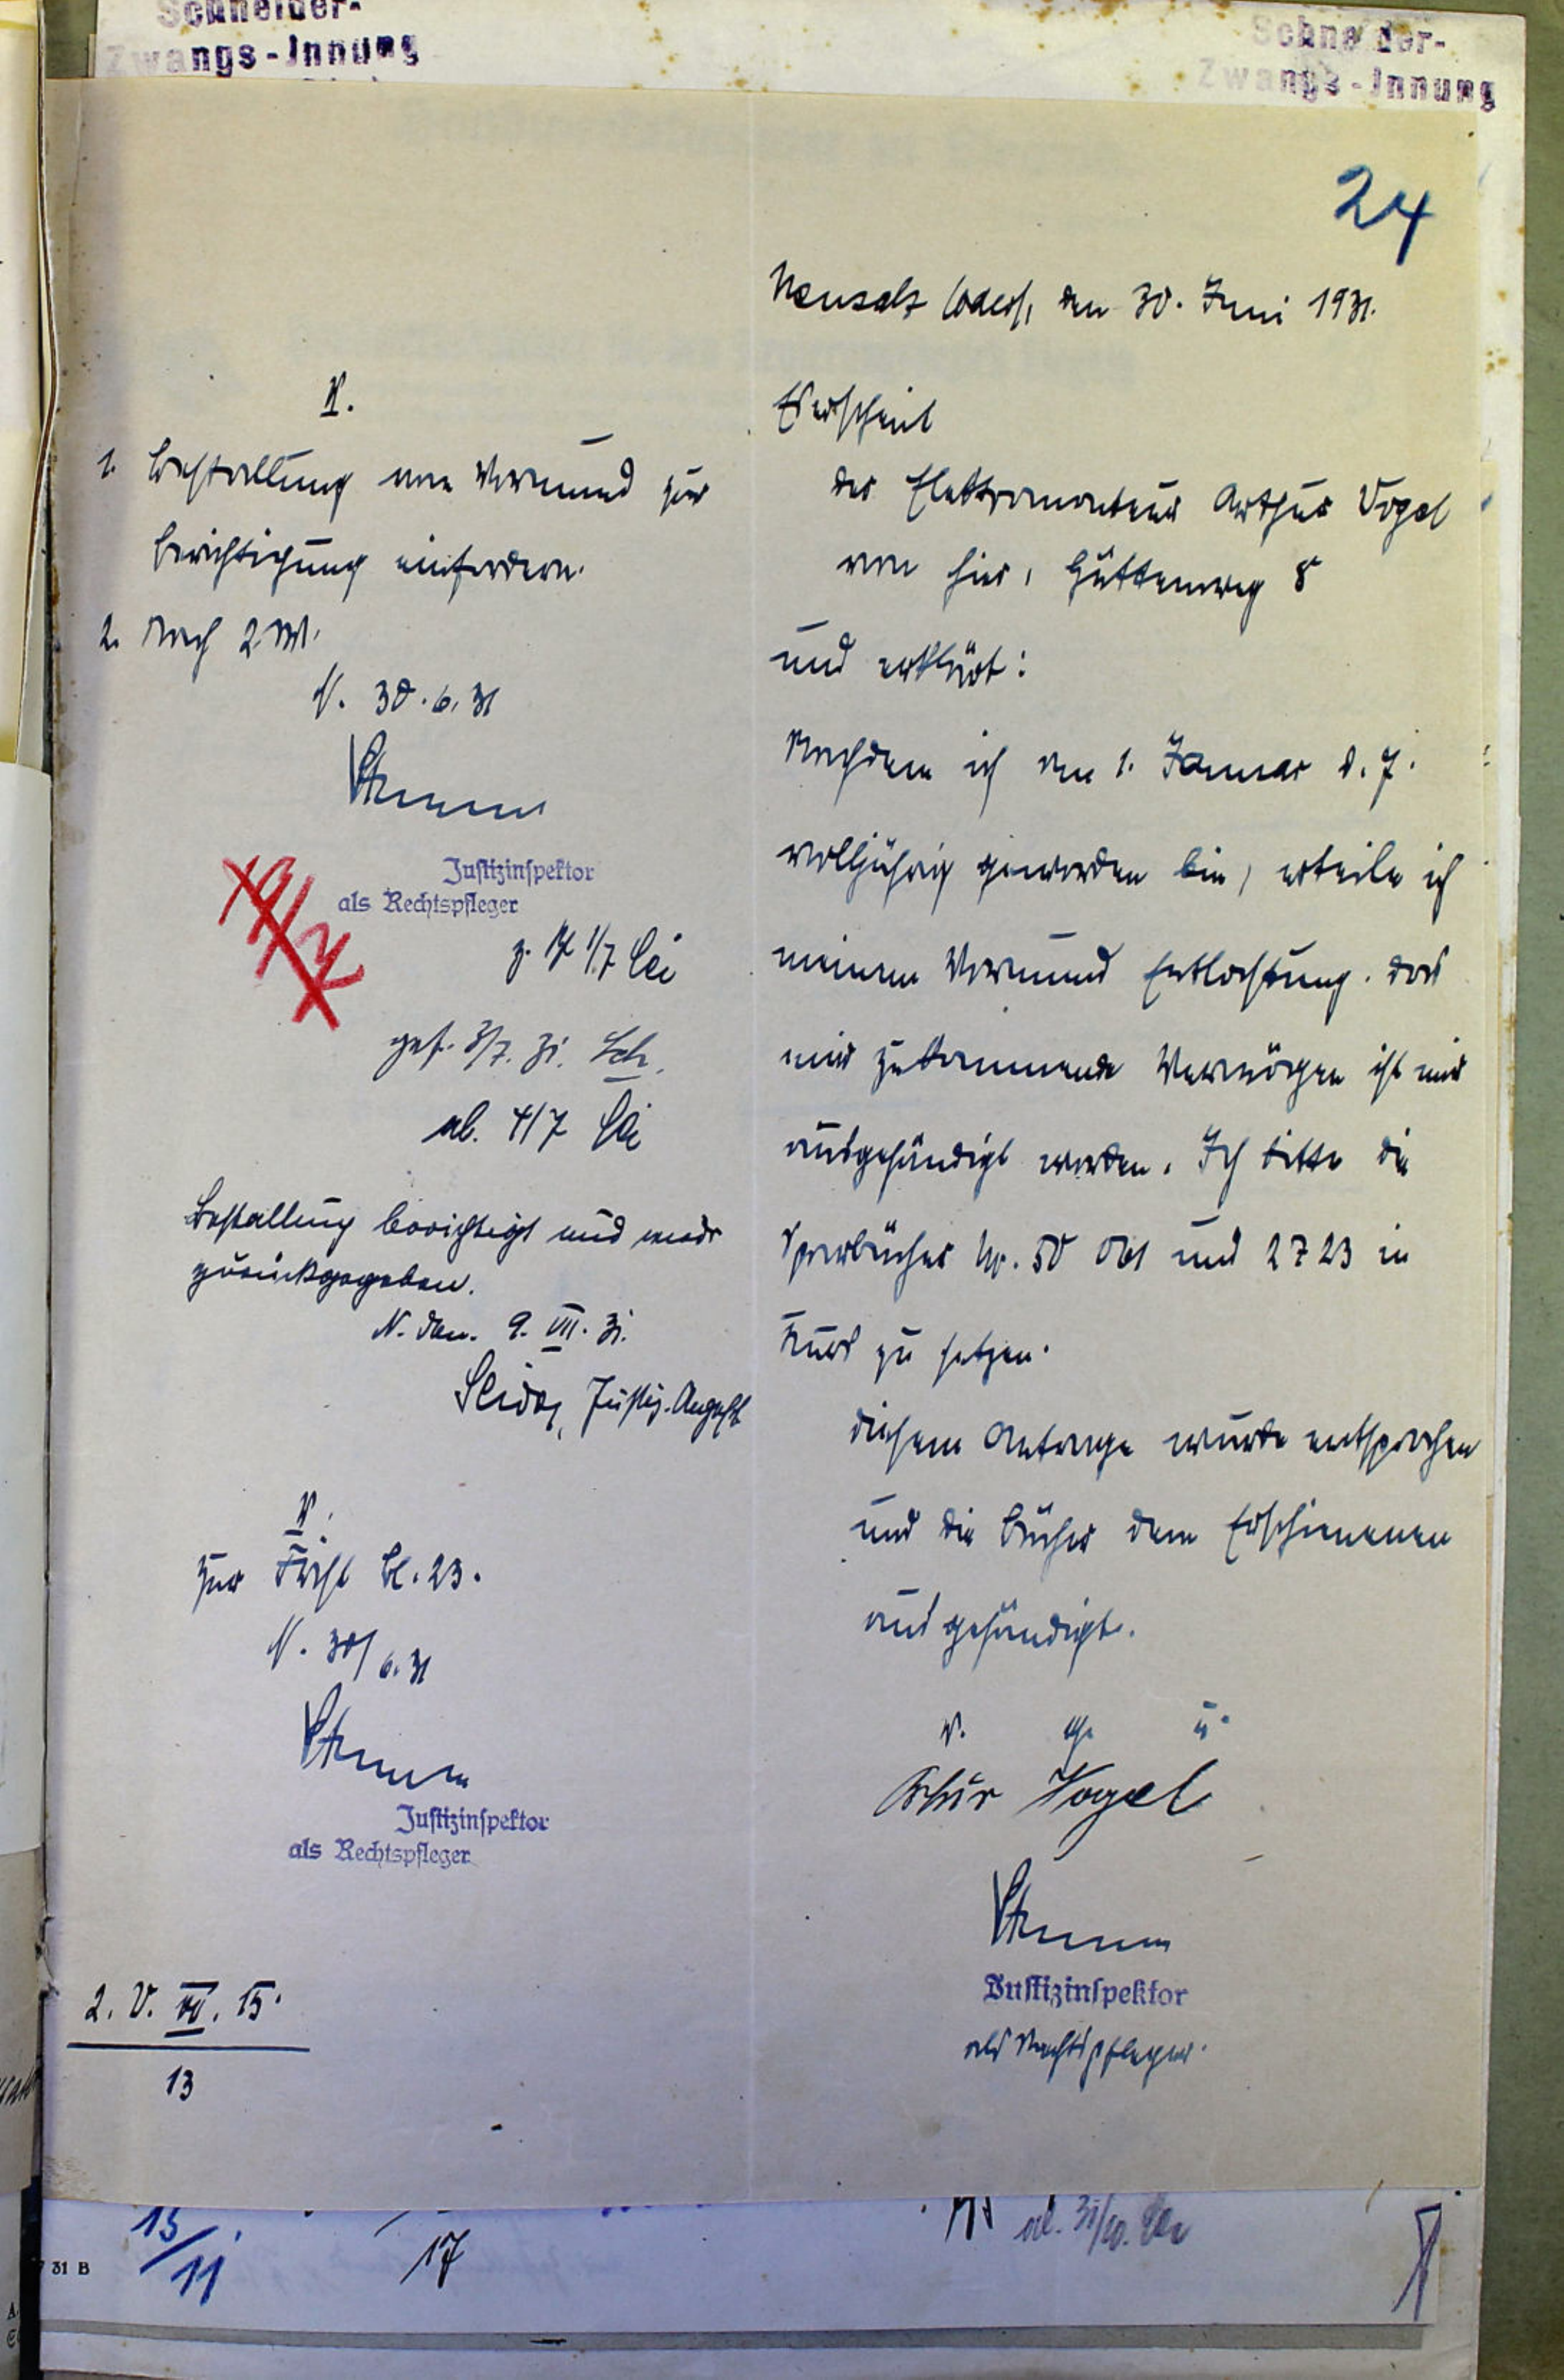 Schneider-
Zwangs-Innung
Schneider-
Zwangs-Innung
24
Neusalz (Oder), den 30. Juni 1931.
Erscheint
der Elektromonteur Arthur Vogel
von hier, Hüttenweg 8
und erklärt:
Nachdem ich am 1. Januar d. J.
volljährig geworden bin, erteile ich
meinem Vormund Entlastung. Das
mir zukommende Vermögen ist mir
ausgehändigt worden. Ich bitte die
Sparbücher Nr. 50 061 und 2723 in
Kurs zu setzen.
Diesem Antrage wurde entsprochen
und die Bücher dem Erschienenen
ausgehändigt.
v. g. u.
Artur Vogel
Justizinspektor
als Rechtspfleger.
V.
1. Bestallung vom Vormund zur
Berichtigung einfordern.
2. Nach 2 W.
N. 30.6.31
Justizinspektor
als Rechtspfleger
gef. 3/7. 31. Sch.
ab. 4/7
Bestallung berichtigt und wieder
zurückgegeben.
N. den. 9. VII. 31.
Justiz-Angest.
V.
Zur Frist Bl. 23.
N. 30/6.31
Justizinspektor
als Rechtspfleger
2. V. VII. 15.
13
15/11
17
ab. 31/10.
31 B